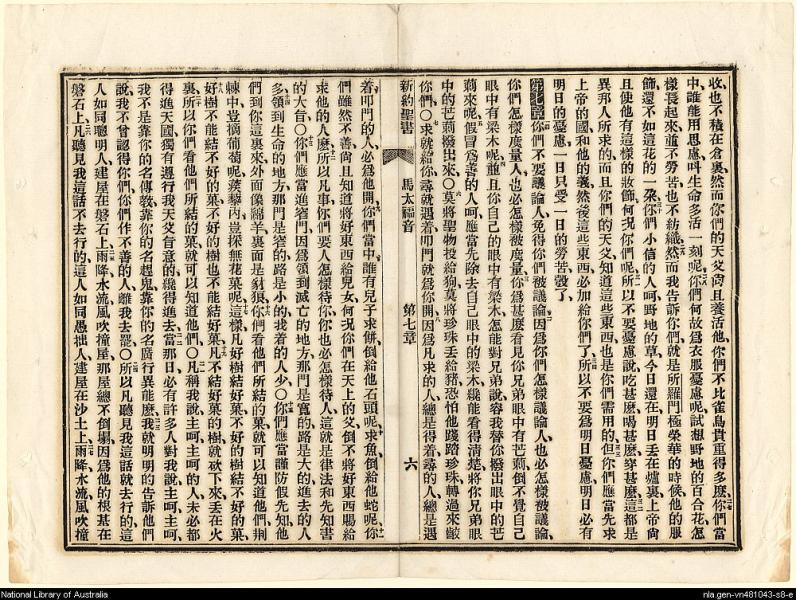 收也不積在倉裏然而你們的天父尙且養活他你們不比雀鳥貴重得多麽你們當
中誰能用思慮呌生命多活一刻呢你們何故爲衣服憂慮呢試想野地的百合花怎
樣長起來並不勞苦也不紡織然而我告訴你們就是所羅門極榮華的時候他的服
飾還不如這花的一朶你們小信的人呵野地的草今日還在明日丟在爐裏上帝尙
且使他有這樣的妝飾何况你們呢所以不要憂慮說吃甚麽喝甚麽穿甚麽這都是
異邦人所求的而且你們的天父知道這些東西也是你們需用的但你們應當先求
上帝的國和他的義然後這些東西必加給你們了所以不要爲明日憂慮明日必有
明日的憂慮一日只受一日的勞苦彀了
第七章你們不要議論人免得你們被議論因爲你們怎樣議論人也必怎樣被議論
你們怎樣度量人也必怎樣被度量你爲甚麽看見你兄弟眼中有芒薊倒不覺自己
眼中有梁木呢並且你自己的眼中有梁木怎能對兄弟說容我替你撥出眼中的芒
薊來呢假冒爲善的人呵應當先除去自己眼中的梁木纔能看得清楚將你兄弟眼
中的芒薊撥出來〇莫將聖物投給狗莫將珍珠丟給豬恐怕他踐踏珍珠轉過來齩
你們〇求就給你尋就遇着叩門就爲你開因爲凡求的人總是得着尋的人總是遇
新約聖書 馬太福音 第七章 六
着叩門的人必爲他開你們當中誰有兒子求餅倒給他石頭呢求魚倒給他蛇呢你
們雖然不善尙且知道將好東西給兒女何况你們在天上的父倒不將好東西賜給
求他的人麽所以凡事你們要人怎樣待你你也必怎樣待人這就是律法和先知書
的大旨〇你們應當進窄門因爲領到滅亡的地方那門是寬的路是大的進去的人
多領到生命的地方那門是窄的路是小的找着的人少〇你們應當謹防假先知他
們到你這裏來外面像綿羊裏面是豺狼你們看他們所結的菓就可以知道他們荆
棘中豈摘葡萄呢蒺藜內豈採無花菓呢這樣凡好樹結好菓不好的樹結不好的菓
好樹不能結不好的菓不好的樹也不能結好菓凡不結好菓的樹就砍下來丟在火
裏所以你們看他們所結的菓就可以知道他們〇凡稱我說主呵主呵的人未必都
得進天國獨有遵行我天父旨意的纔得進去當那日必有許多人對我說主呵主呵
我不是靠你的名傳敎靠你的名趕鬼靠你的名廣行異能麽我就明明的告訴他們
說我不曾認得你們你們作不善的人離我去罷〇所以凡聽見我這話就去行的這
人如同聰明人建屋在磐石上雨降水流風吹撞屋那屋總不倒塌因爲他的根基在
磐石上凡聽見我這話不去行的這人如同愚拙人建屋在沙土上雨降水流風吹撞
National Library of Australia
nla.gen-vn481043-s8-e